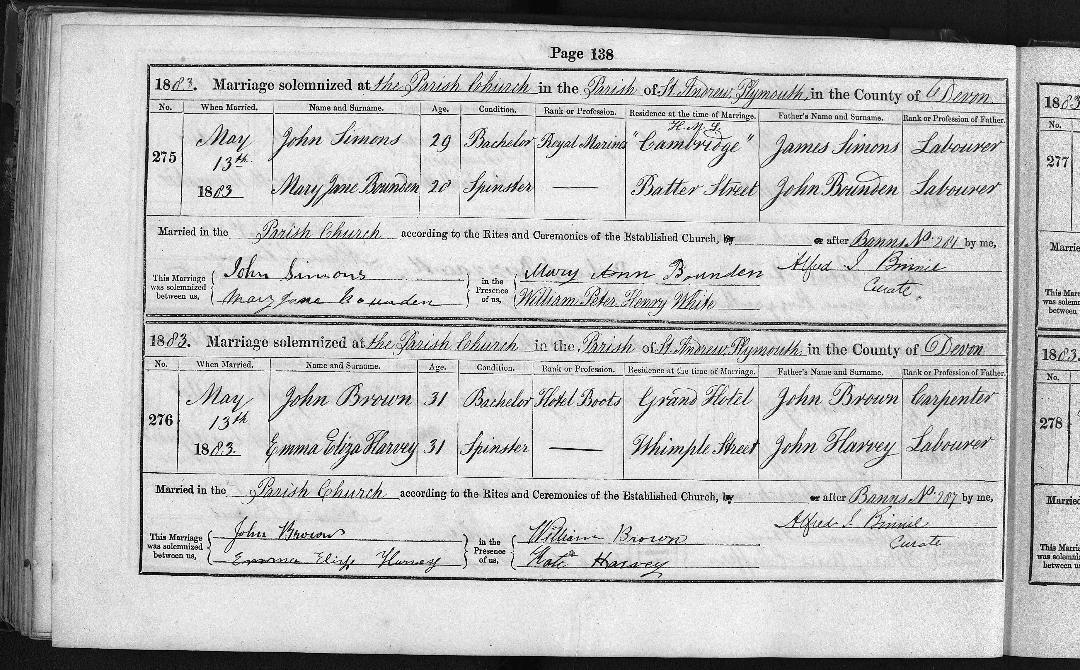 Page 138
1883. Marriage solemnized at the Parish Church in the Parish of St. Andrew, Plymouth in the County of Devon
No. When Married. Name and Surname. Age. Condition. Rank or Profession. Residence at the time of Marriage. Father's Name and Surname. Rank or Profession of Father.
275 May 13th 1883 John Simons 29 Bachelor Royal Marine H.M.S. "Cambridge" James Simons Labourer
Mary Jane Bounden 20 Spinster — Batter Street John Bounden Labourer
Married in the Parish Church according to the Rites and Ceremonies of the Established Church, by or after Banns No. 281 by me,
This Marriage was solemnized between us, John Simons in the Presence of us, Mary Ann Bounden Alfred J. Binnie
Mary Jane Bounden William Peter Henry White Curate.
1883. Marriage solemnized at the Parish Church in the Parish of St. Andrew, Plymouth in the County of Devon
No. When Married. Name and Surname. Age. Condition. Rank or Profession. Residence at the time of Marriage. Father's Name and Surname. Rank or Profession of Father.
276 May 13th 1883. John Brown 31 Bachelor Hotel Boots Grand Hotel John Brown Carpenter
Emma Eliza Harvey 31 Spinster — Whimple Street John Harvey Labourer
Married in the Parish Church according to the Rites and Ceremonies of the Established Church, by or after Banns No. 287 by me,
This Marriage was solemnized between us, John Brown in the Presence of us, William Brown Alfred J. Binnie
Emma Eliza Harvey Kate Harvey Curate
1883
No.
277
Married
This Mar
was solemn
between
1883.
No.
278
Married
This Marri
was solemniz
between us